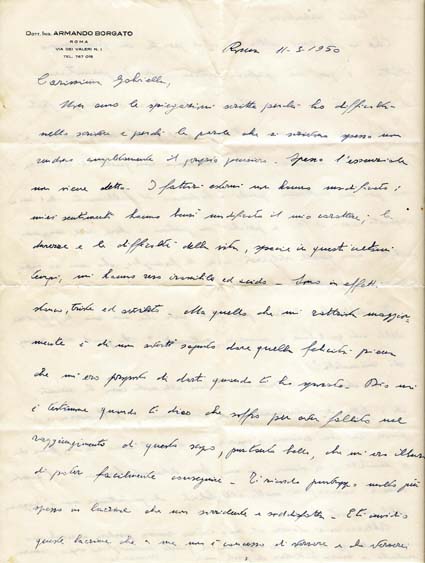 Dott. Ing. ARMANDO BORGATO
ROMA
VIA DEI VALERI N. 1
TEL. 767 019
Roma 11-3-1950
Carissima Gabriella,
Non amo le spiegazioni scritte perchè ho difficoltà
nello scrivere e perchè le parole che si scrivono spesso non
rendono ampiamente il proprio pensiero. Spesso l'essenziale
non viene detto. I fattori esterni non hanno modificato i
miei sentimenti hanno bensì modificato il mio carattere; le
durezze e le difficoltà della vita, specie in questi ultimi
tempi, mi hanno reso irascibile ed acido. Sono in effetti
stanco, triste ed avvilito. Ma quello che mi rattrista maggior-
mente è di non averti saputo dare quella felicità piena
che mi ero proposto di darti quando ti ho sposato. Dio mi
è testimone quando ti dico che soffro per aver fallito nel
raggiungimento di questo sogno, purtanto bello, che mi ero illuso
di poter facilmente conseguire. Ti ricordo purtroppo molto più
spesso in lacrime che non sorridente e soddisfatta. E ti invidio
queste lacrime che a me non è concesso di versare e che verserei